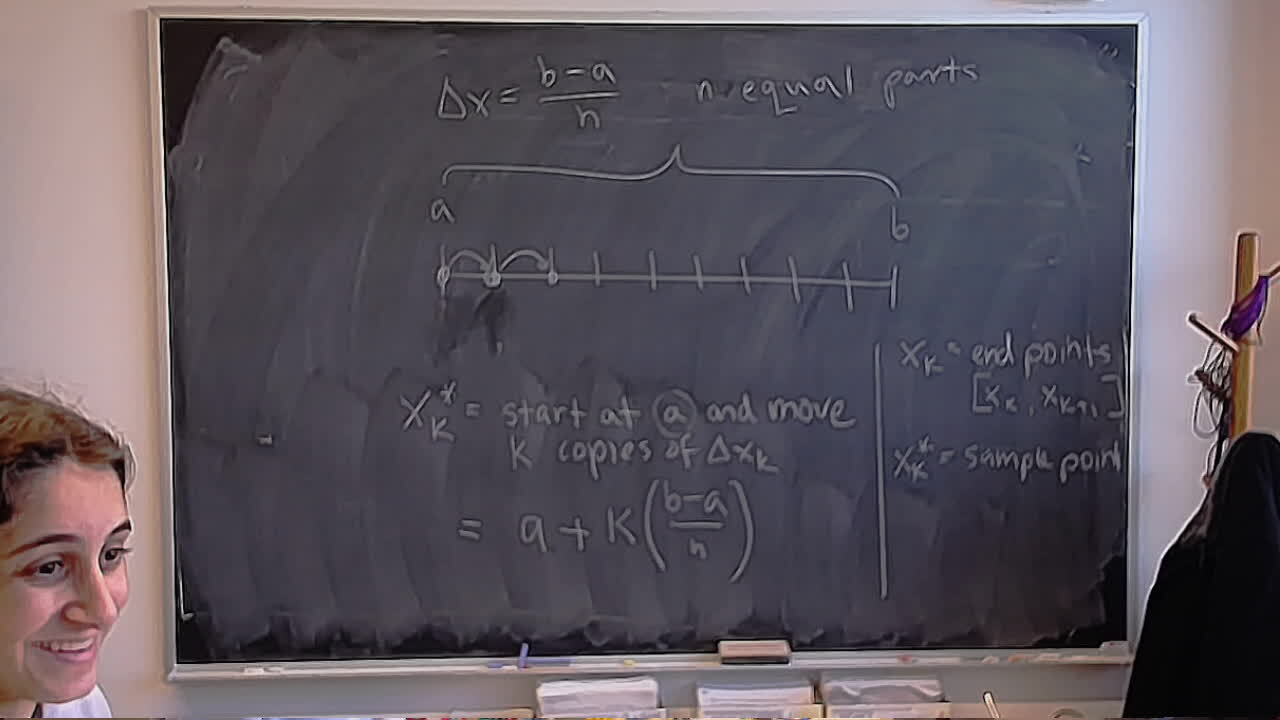 Δx = (b-a)/n n equal parts
a
b
x_k^* = start at a and move
k copies of Δx_k
= a + k((b-a)/n)
x_k = end points
[x_k, x_{k+1}]
x_k^* = sample point